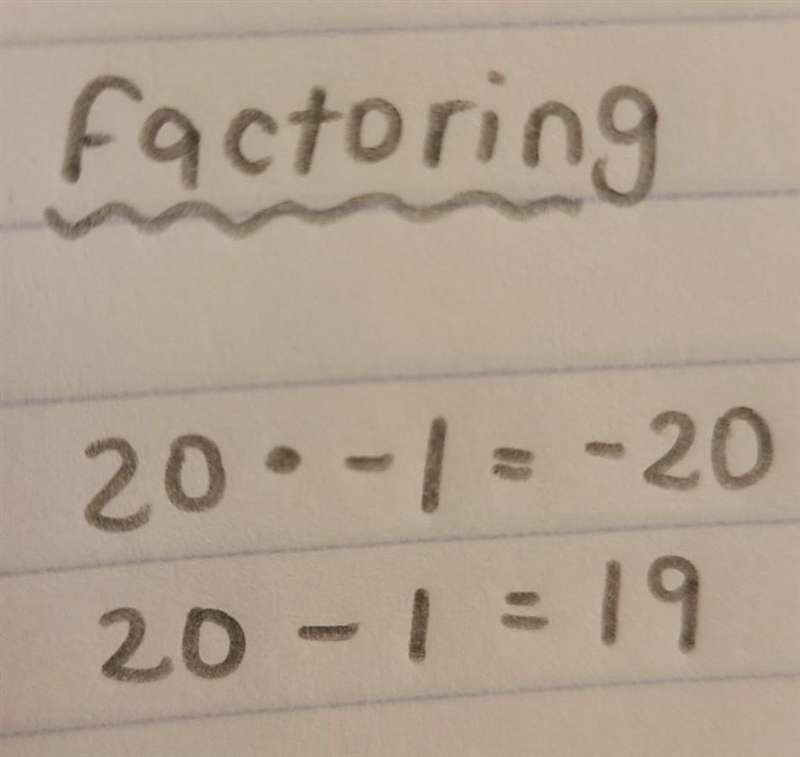 Factoring
20 • -1 = -20
20 - 1 = 19